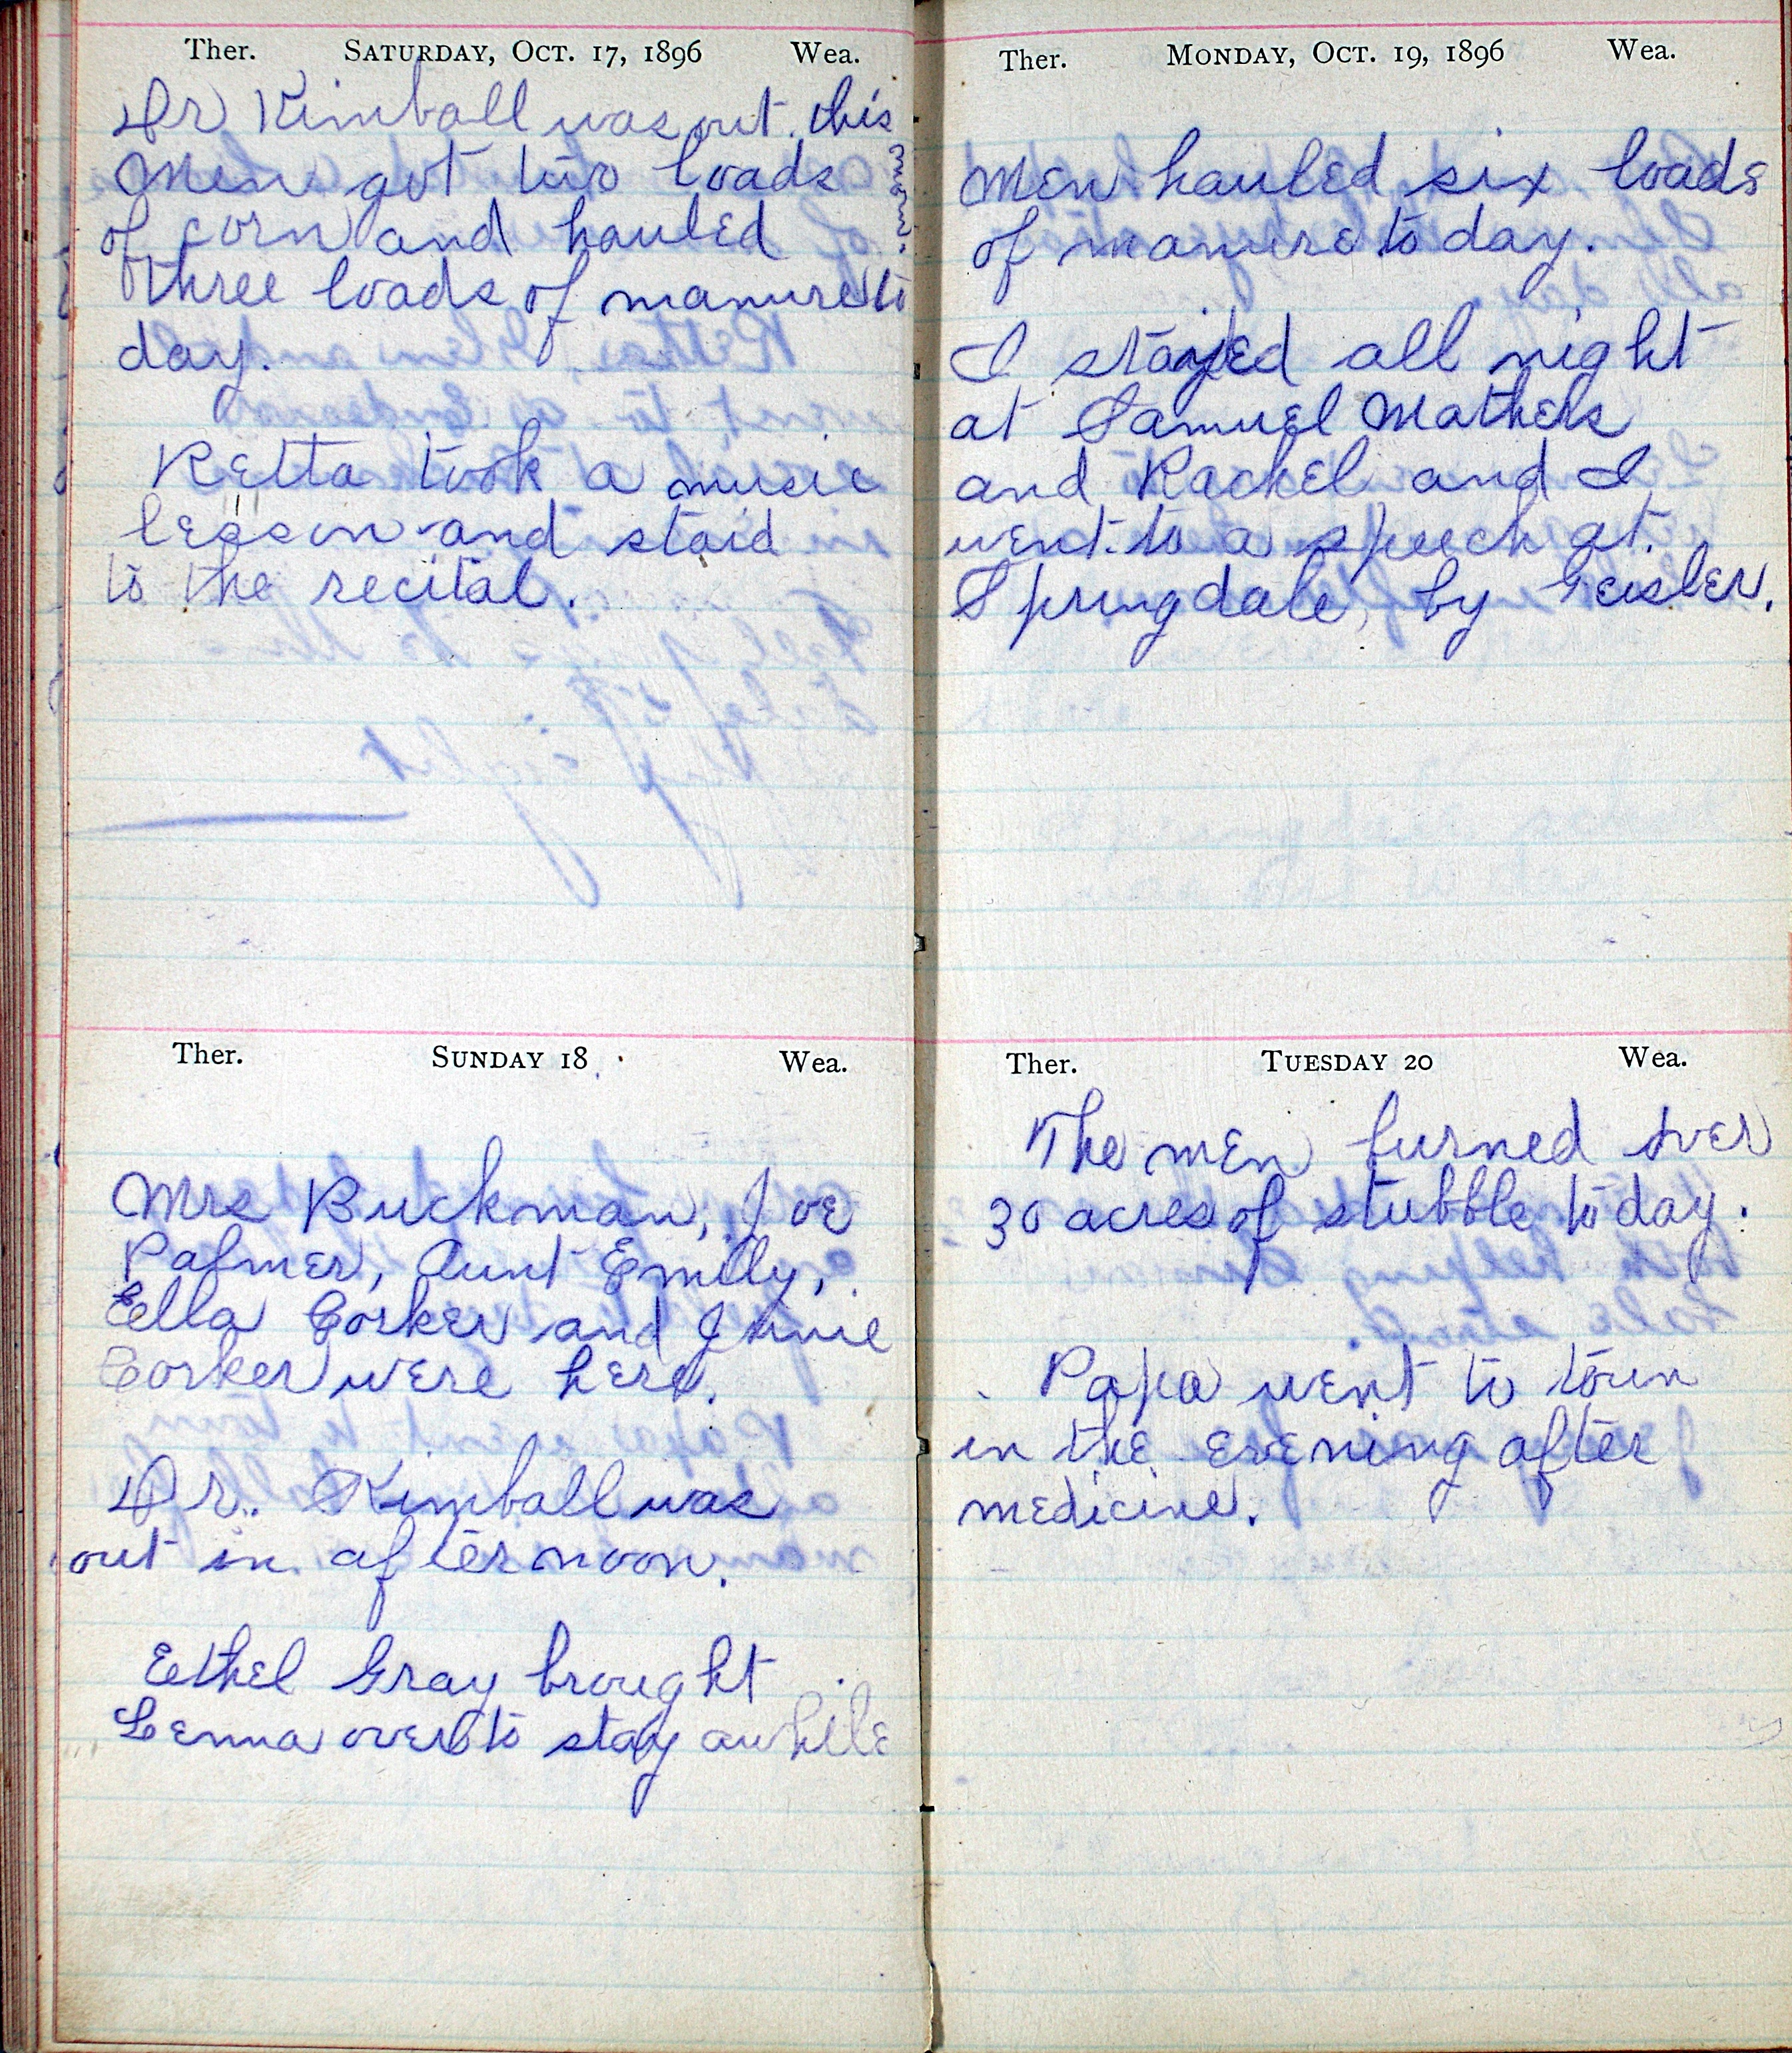 Ther. SATURDAY, OCT. 17, 1896 Wea.
Dr Kimball was out this
morn.
Men got two loads
of corn and hauled
three loads of manure to
day.
Retta took a music
lesson and staid
to the recital.
Ther. SUNDAY 18 Wea.
Mrs Buckman, Joe
Palmer, Aunt Emily,
Ella Corker and Jennie
Corker were here.
Dr. Kimball was
out in afternoon.
Ethel Gray brought
Lenna over to stay awhile
Ther. MONDAY, OCT. 19, 1896 Wea.
Men hauled six loads
of manure to day.
I stayed all night
at Samuel Mathers
and Rachel and I
went to a speech at
Springdale, by Geisler.
Ther. TUESDAY 20 Wea.
The men turned over
30 acres of stubble to day.
Papa went to town
in the evening after
medicine.